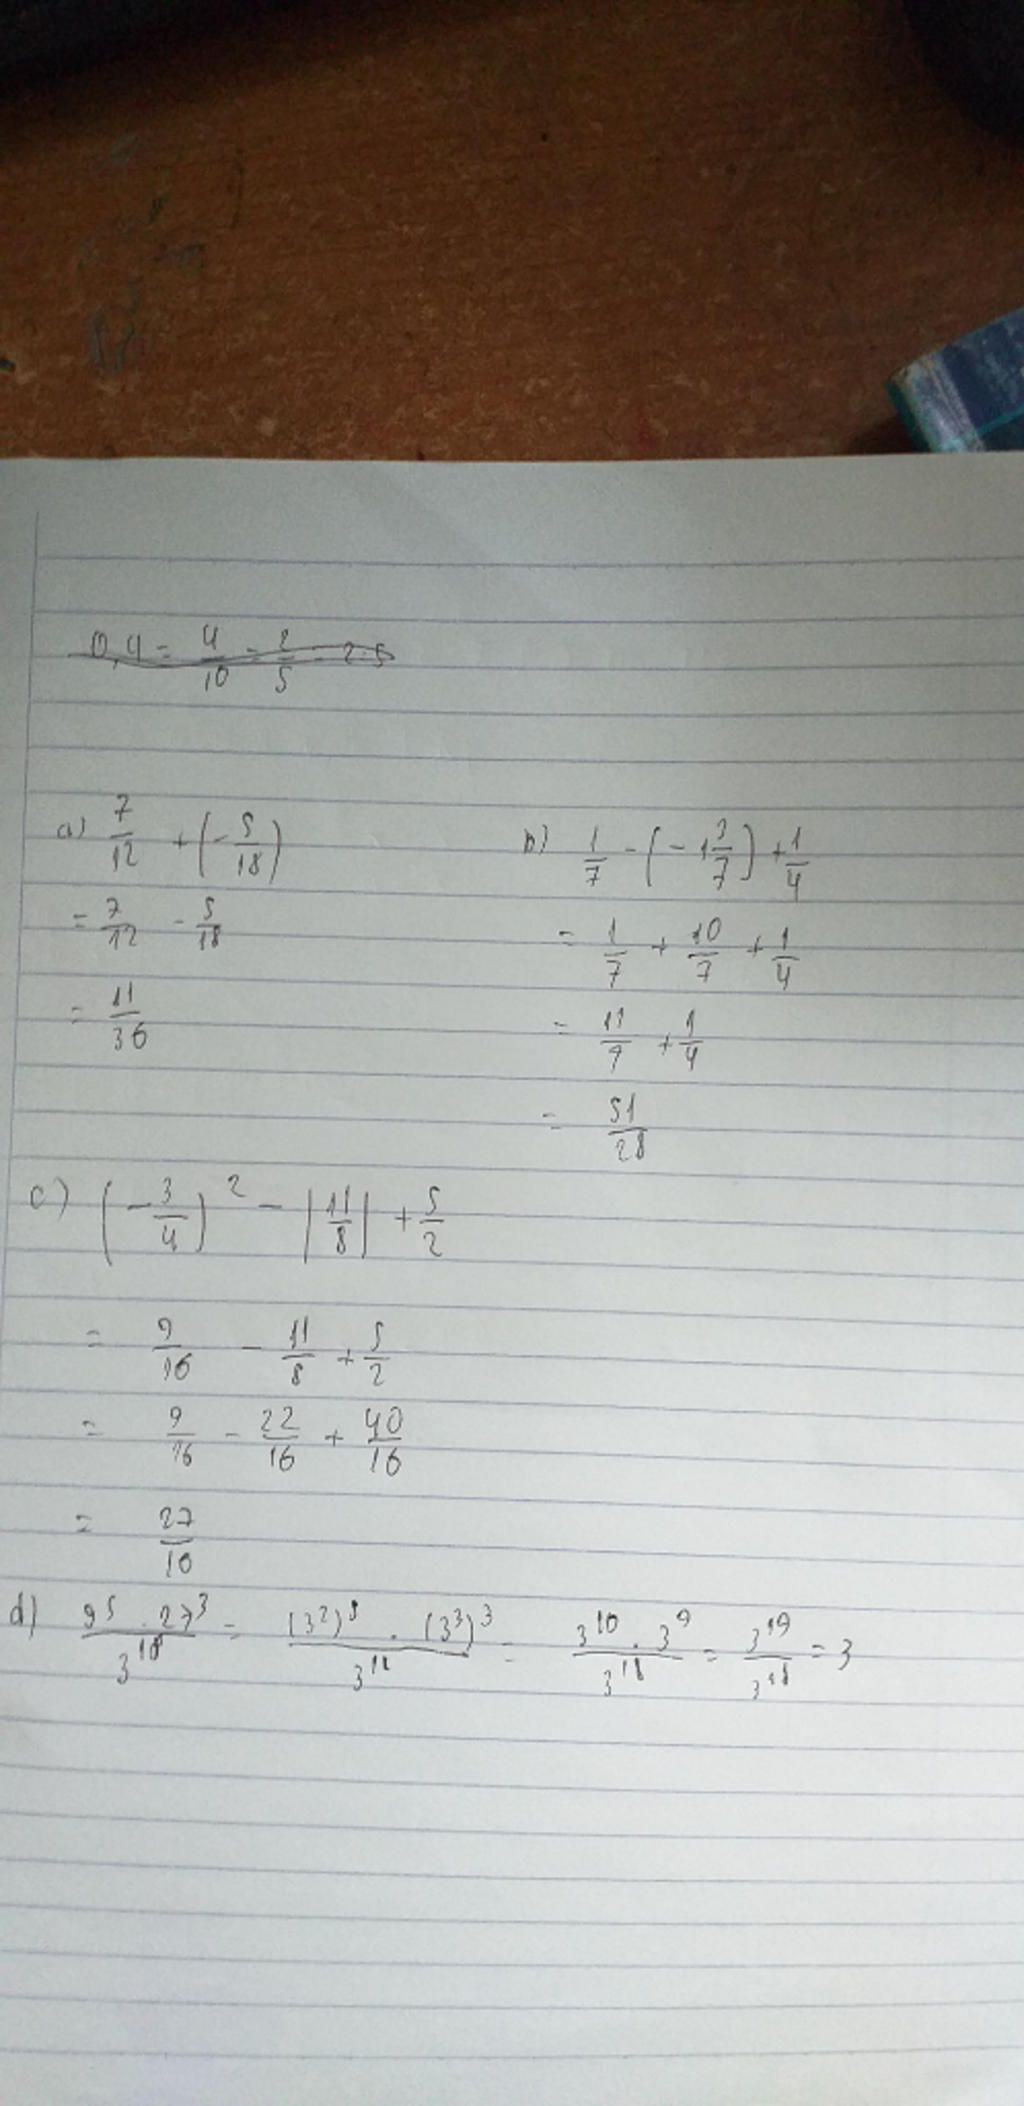 0,4 = 4/10 = 2/5 = 2:5
a) 7/12 + (-5/18)
= 7/12 - 5/18
= 11/36
b) 1/7 - (-1 3/7) + 1/4
= 1/7 + 10/7 + 1/4
= 11/7 + 1/4
= 51/28
c) (-3/4)^2 - |11/8| + 5/2
= 9/16 - 11/8 + 5/2
= 9/16 - 22/16 + 40/16
= 27/16
d) 9^5 . 27^3 / 3^18 = (3^2)^5 . (3^3)^3 / 3^18 = 3^10 . 3^9 / 3^18 = 3^19 / 3^18 = 3